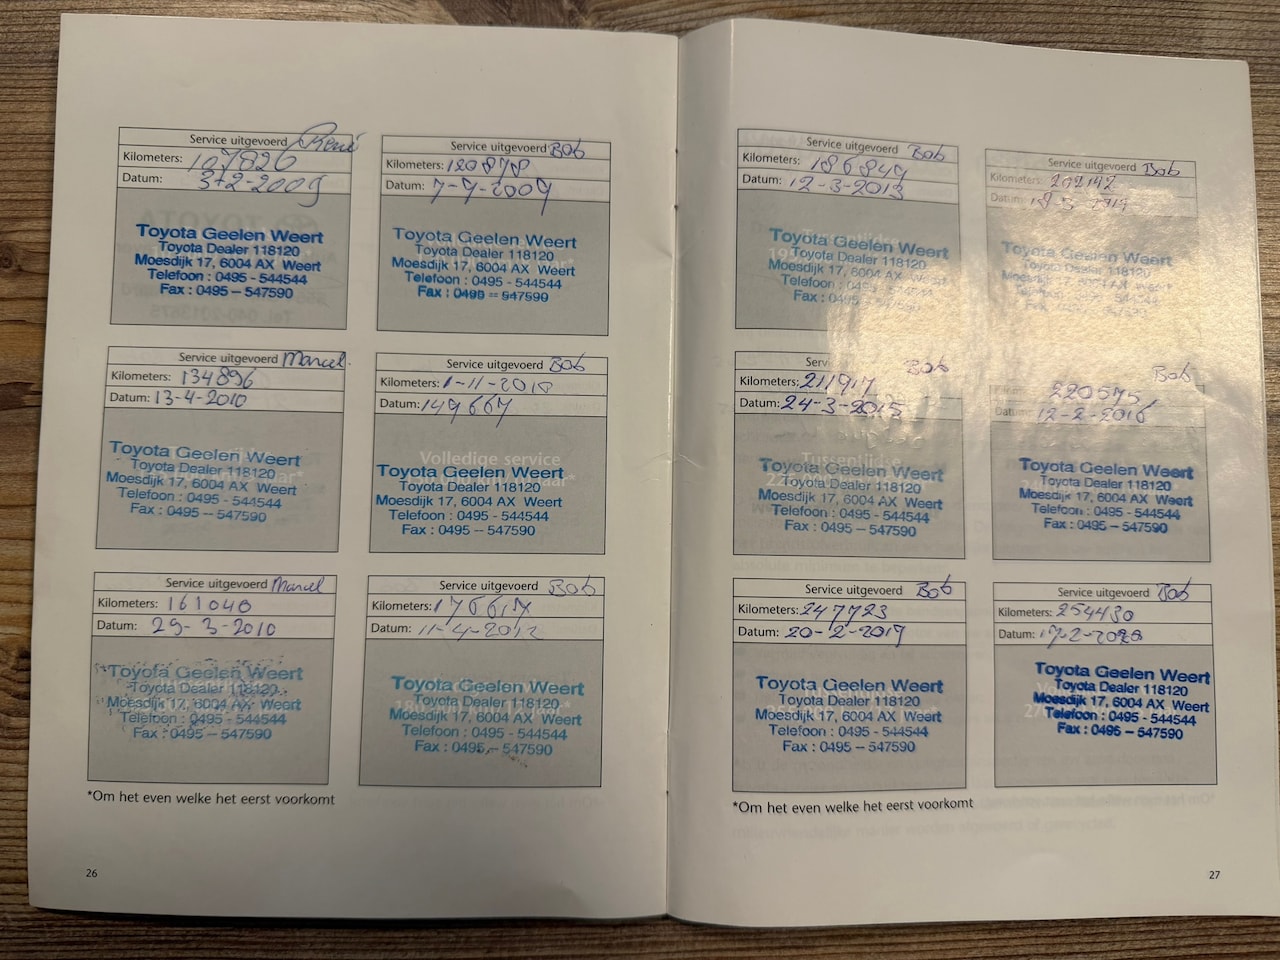 Service uitgevoerd René
Kilometers: 107826
Datum: 3-2-2009
Toyota Geelen Weert
Toyota Dealer 118120
Moesdijk 17, 6004 AX Weert
Telefoon : 0495 - 544544
Fax : 0495 – 547590
Service uitgevoerd Bob
Kilometers: 120878
Datum: 7-9-2009
Toyota Geelen Weert
Toyota Dealer 118120
Moesdijk 17, 6004 AX Weert
Telefoon : 0495 - 544544
Fax : 0495 – 547590
Service uitgevoerd Marcel
Kilometers: 134896
Datum: 13-4-2010
Toyota Geelen Weert
Toyota Dealer 118120
Moesdijk 17, 6004 AX Weert
Telefoon : 0495 - 544544
Fax : 0495 – 547590
Service uitgevoerd Bob
Kilometers: 1-11-2010
Datum: 149667
Volledige service
Toyota Geelen Weert
Toyota Dealer 118120
Moesdijk 17, 6004 AX Weert
Telefoon : 0495 - 544544
Fax : 0495 – 547590
Service uitgevoerd Marcel
Kilometers: 161040
Datum: 29-3-2010
Toyota Geelen Weert
Toyota Dealer 118120
Moesdijk 17, 6004 AX Weert
Telefoon : 0495 - 544544
Fax : 0495 – 547590
Service uitgevoerd Bob
Kilometers: 176617
Datum: 11-4-2012
Toyota Geelen Weert
Toyota Dealer 118120
Moesdijk 17, 6004 AX Weert
Telefoon : 0495 - 544544
Fax : 0495 – 547590
*Om het even welke het eerst voorkomt
26
Service uitgevoerd Bob
Kilometers: 186849
Datum: 12-3-2013
Tussentijdse
Toyota Geelen Weert
Toyota Dealer 118120
Moesdijk 17, 6004 AX Weert
Telefoon : 0495 - 544544
Fax : 0495
Service uitgevoerd Bob
Kilometers: 202142
Datum: 18-3-2014
Toyota Geelen Weert
Toyota Dealer 118120
Moesdijk 17, 6004 AX Weert
Bob
Kilometers: 211917
Datum: 24-3-2015
Tussentijdse
Toyota Geelen Weert
Toyota Dealer 118120
Moesdijk 17, 6004 AX Weert
Telefoon : 0495 - 544544
Fax : 0495 – 547590
Bob
220575
Datum: 12-2-2016
Toyota Geelen Weert
Toyota Dealer 118120
Moesdijk 17, 6004 AX Weert
Telefoon : 0495 - 544544
Fax : 0495 – 547590
Service uitgevoerd Bob
Kilometers: 247723
Datum: 20-2-2019
Toyota Geelen Weert
Toyota Dealer 118120
Moesdijk 17, 6004 AX Weert
Telefoon : 0495 - 544544
Fax : 0495 – 547590
Service uitgevoerd Bob
Kilometers: 254430
Datum: 17-2-2020
Toyota Geelen Weert
Toyota Dealer 118120
Moesdijk 17, 6004 AX Weert
Telefoon : 0495 - 544544
Fax : 0495 – 547590
*Om het even welke het eerst voorkomt
27